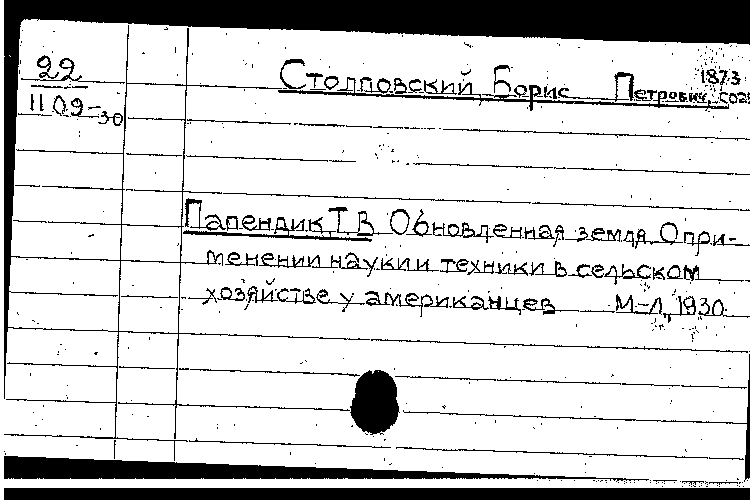 22
1109-30
1873
Столповский, Борис Петрович, соав
Папендик, Т. В. Обновленная земля. О при-
менении науки и техники в сельском
хозяйстве у американцев М-Л, 1930